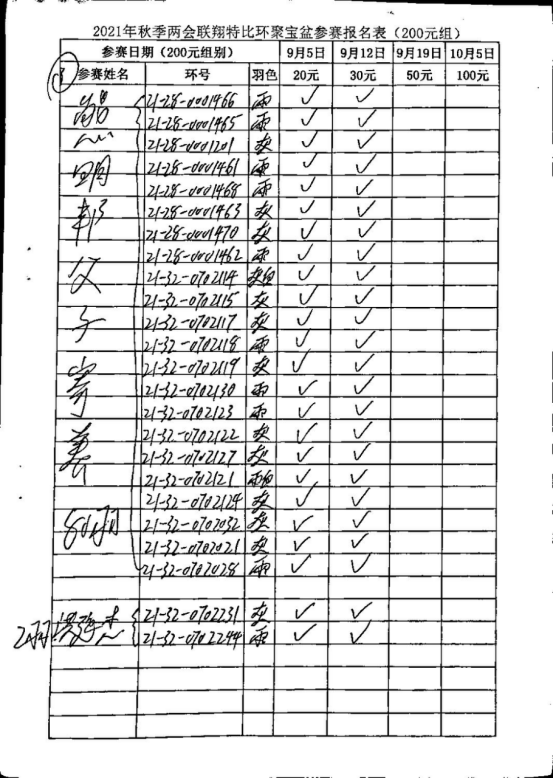 2021年秋季两会联翔特比环聚宝盆参赛报名表（200元组）
参赛日期（200元组别） 9月5日 9月12日 9月19日 10月5日
参赛姓名 环号 羽色 20元 30元 50元 100元
21-28-0001466 雨 ✓ ✓
21-28-0001465 雨 ✓ ✓
21-28-0001201 灰 ✓ ✓
21-28-0001461 雨 ✓ ✓
21-28-0001468 雨 ✓ ✓
21-28-0001463 灰 ✓ ✓
21-28-0001470 灰 ✓ ✓
21-28-0001462 雨 ✓ ✓
父 21-32-0702114 ✓ ✓
21-32-0702115 灰 ✓ ✓
子 21-32-0702117 灰 ✓ ✓
21-32-0702118 雨 ✓ ✓
21-32-0702119 灰 ✓ ✓
21-32-0702130 雨 ✓ ✓
21-32-0702123 雨 ✓ ✓
21-32-0702122 灰 ✓ ✓
21-32-0702127 灰 ✓ ✓
21-32-0702121 ✓ ✓
21-32-0702124 灰 ✓ ✓
21-32-0702032 灰 ✓ ✓
21-32-0702021 灰 ✓ ✓
21-32-0702028 雨 ✓ ✓
21-32-0702231 灰 ✓ ✓
21-32-0702244 雨 ✓ ✓